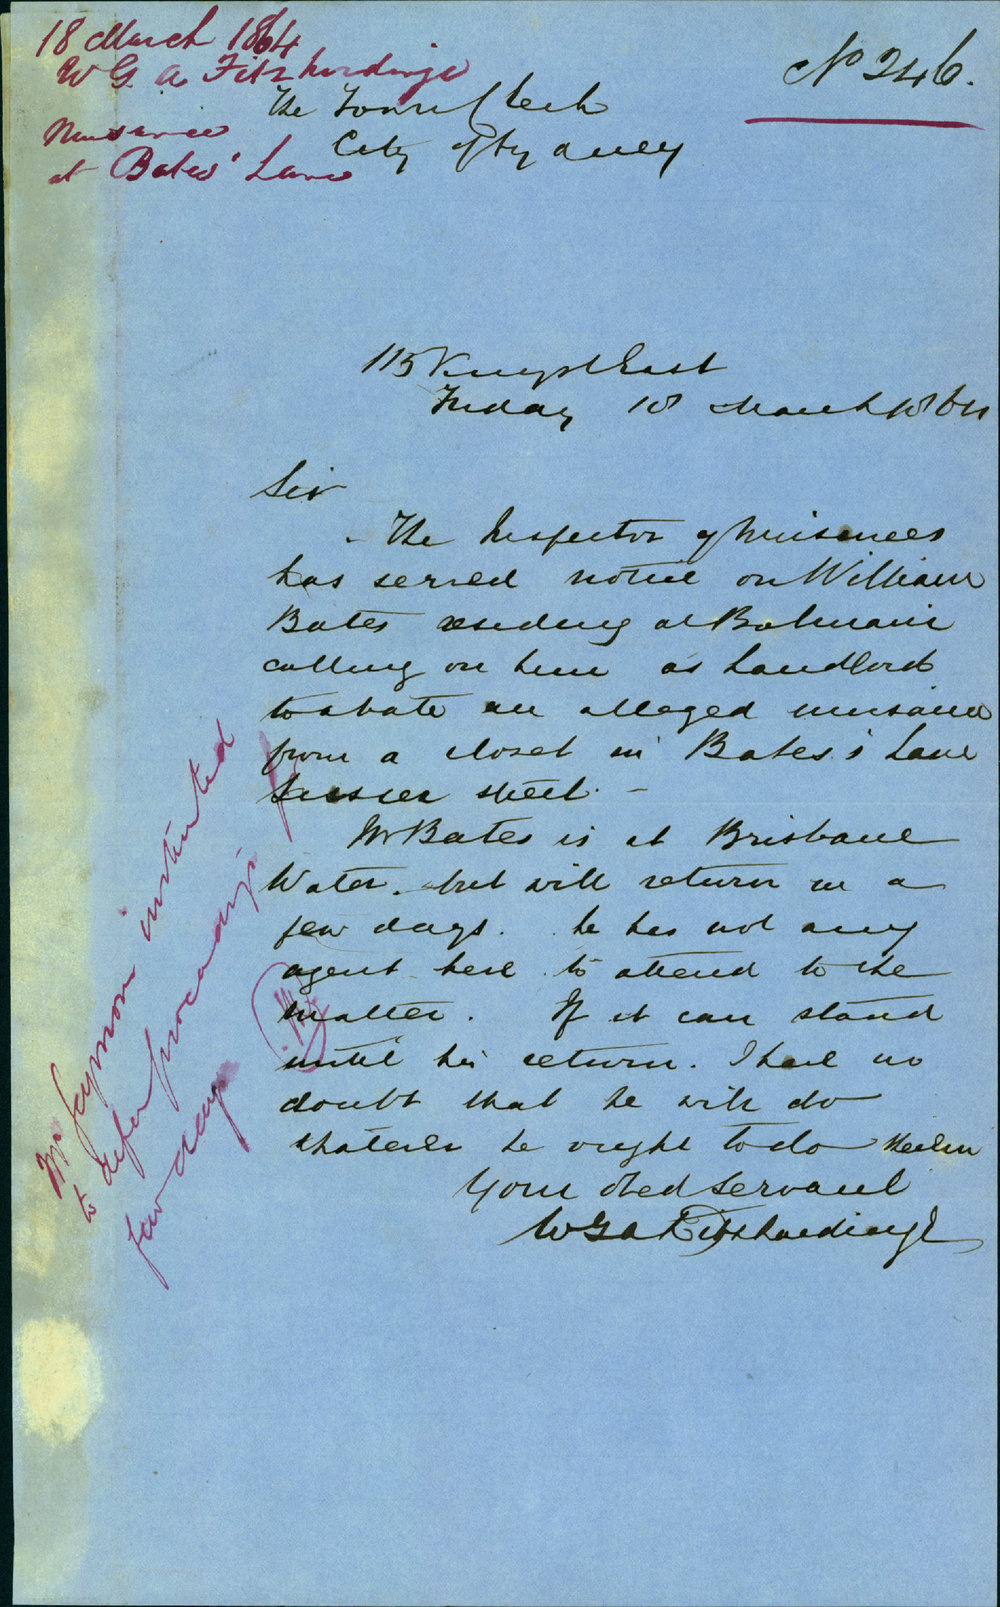 18 March 1864
W G. A Fitzhardinge
Nuisance
at Bates' Lane
No 246.
The Town Clerk
City of Sydney
115 King St East
Friday 18 March 1864
Sir
The Inspector of Nuisances
has served notice on William
Bates residing at Balmain
calling on him as Landlord
to abate an alleged nuisance
from a closet in Bates's Lane
Sussex street. -
Mr Bates is at Brisbane
Water. but will return in a
few days. he has not any
agent here to attend to the
matter. If it can stand
until his return. I have no
doubt that he will do
whatever he ought to do
Your obed Servant
W G A Fitzhardinge
Mr Seymour instructed
to defer proceedings
few days